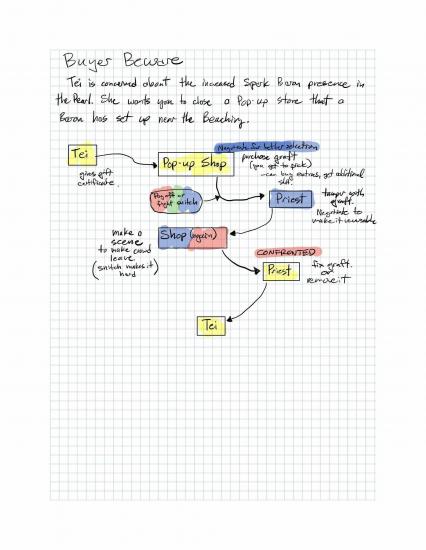 Buyer Beware
Tei is concerned about the increased Spark Baron presence in
the Pearl. She wants you to close a Pop-up store that a
Baron has set up near the Beaching.
Negotiate for better selection
Tei
Pop-up Shop
purchase graft
(you get to pick)
-can buy extras, get additional
shill.
gives gift
certificate.
Pay off or
fight snitch
Priest
tamper with
graft.
Negotiate to
make it unusable
make a
scene
to make crowd
leave
(snitch makes it
hard
Shop (again)
CONFRONTED
Priest
fix graft.
or
remove it
Tei